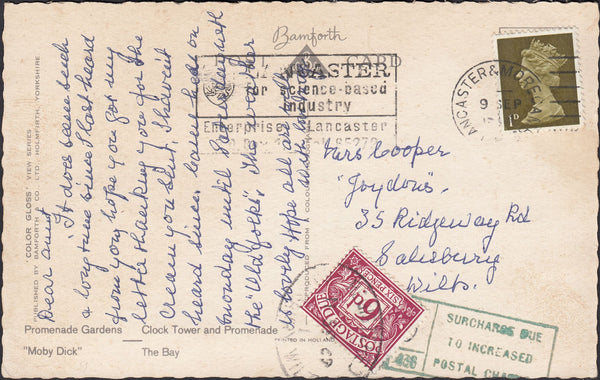 Bamforth
POST CARD
LANCASTER
for science-based
industry
Enterprise Lancaster
LANCASTER & MORECAMBE
9 SEP
Dear Aunt
It does seem such
a long time since I last heard
from you, hope you got my
letter thanking you for the
Cream you sent, I haven't
heard since. Came here on
Monday until
the "Old folks". The weather
is lovely. Hope all are well
Mrs Cooper
"Joydons".
35 Ridgeway Rd
Salisbury
Wilts.
POSTAGE DUE
6d.
SIX PENCE
SURCHARGE DUE
TO INCREASED
POSTAL
438
"COLOR GLOSS" VIEW SERIES
PUBLISHED BY BAMFORTH & CO. LTD., HOLMFIRTH, YORKSHIRE
PRINTED IN HOLLAND
Promenade Gardens
Clock Tower and Promenade
"Moby Dick"
The Bay